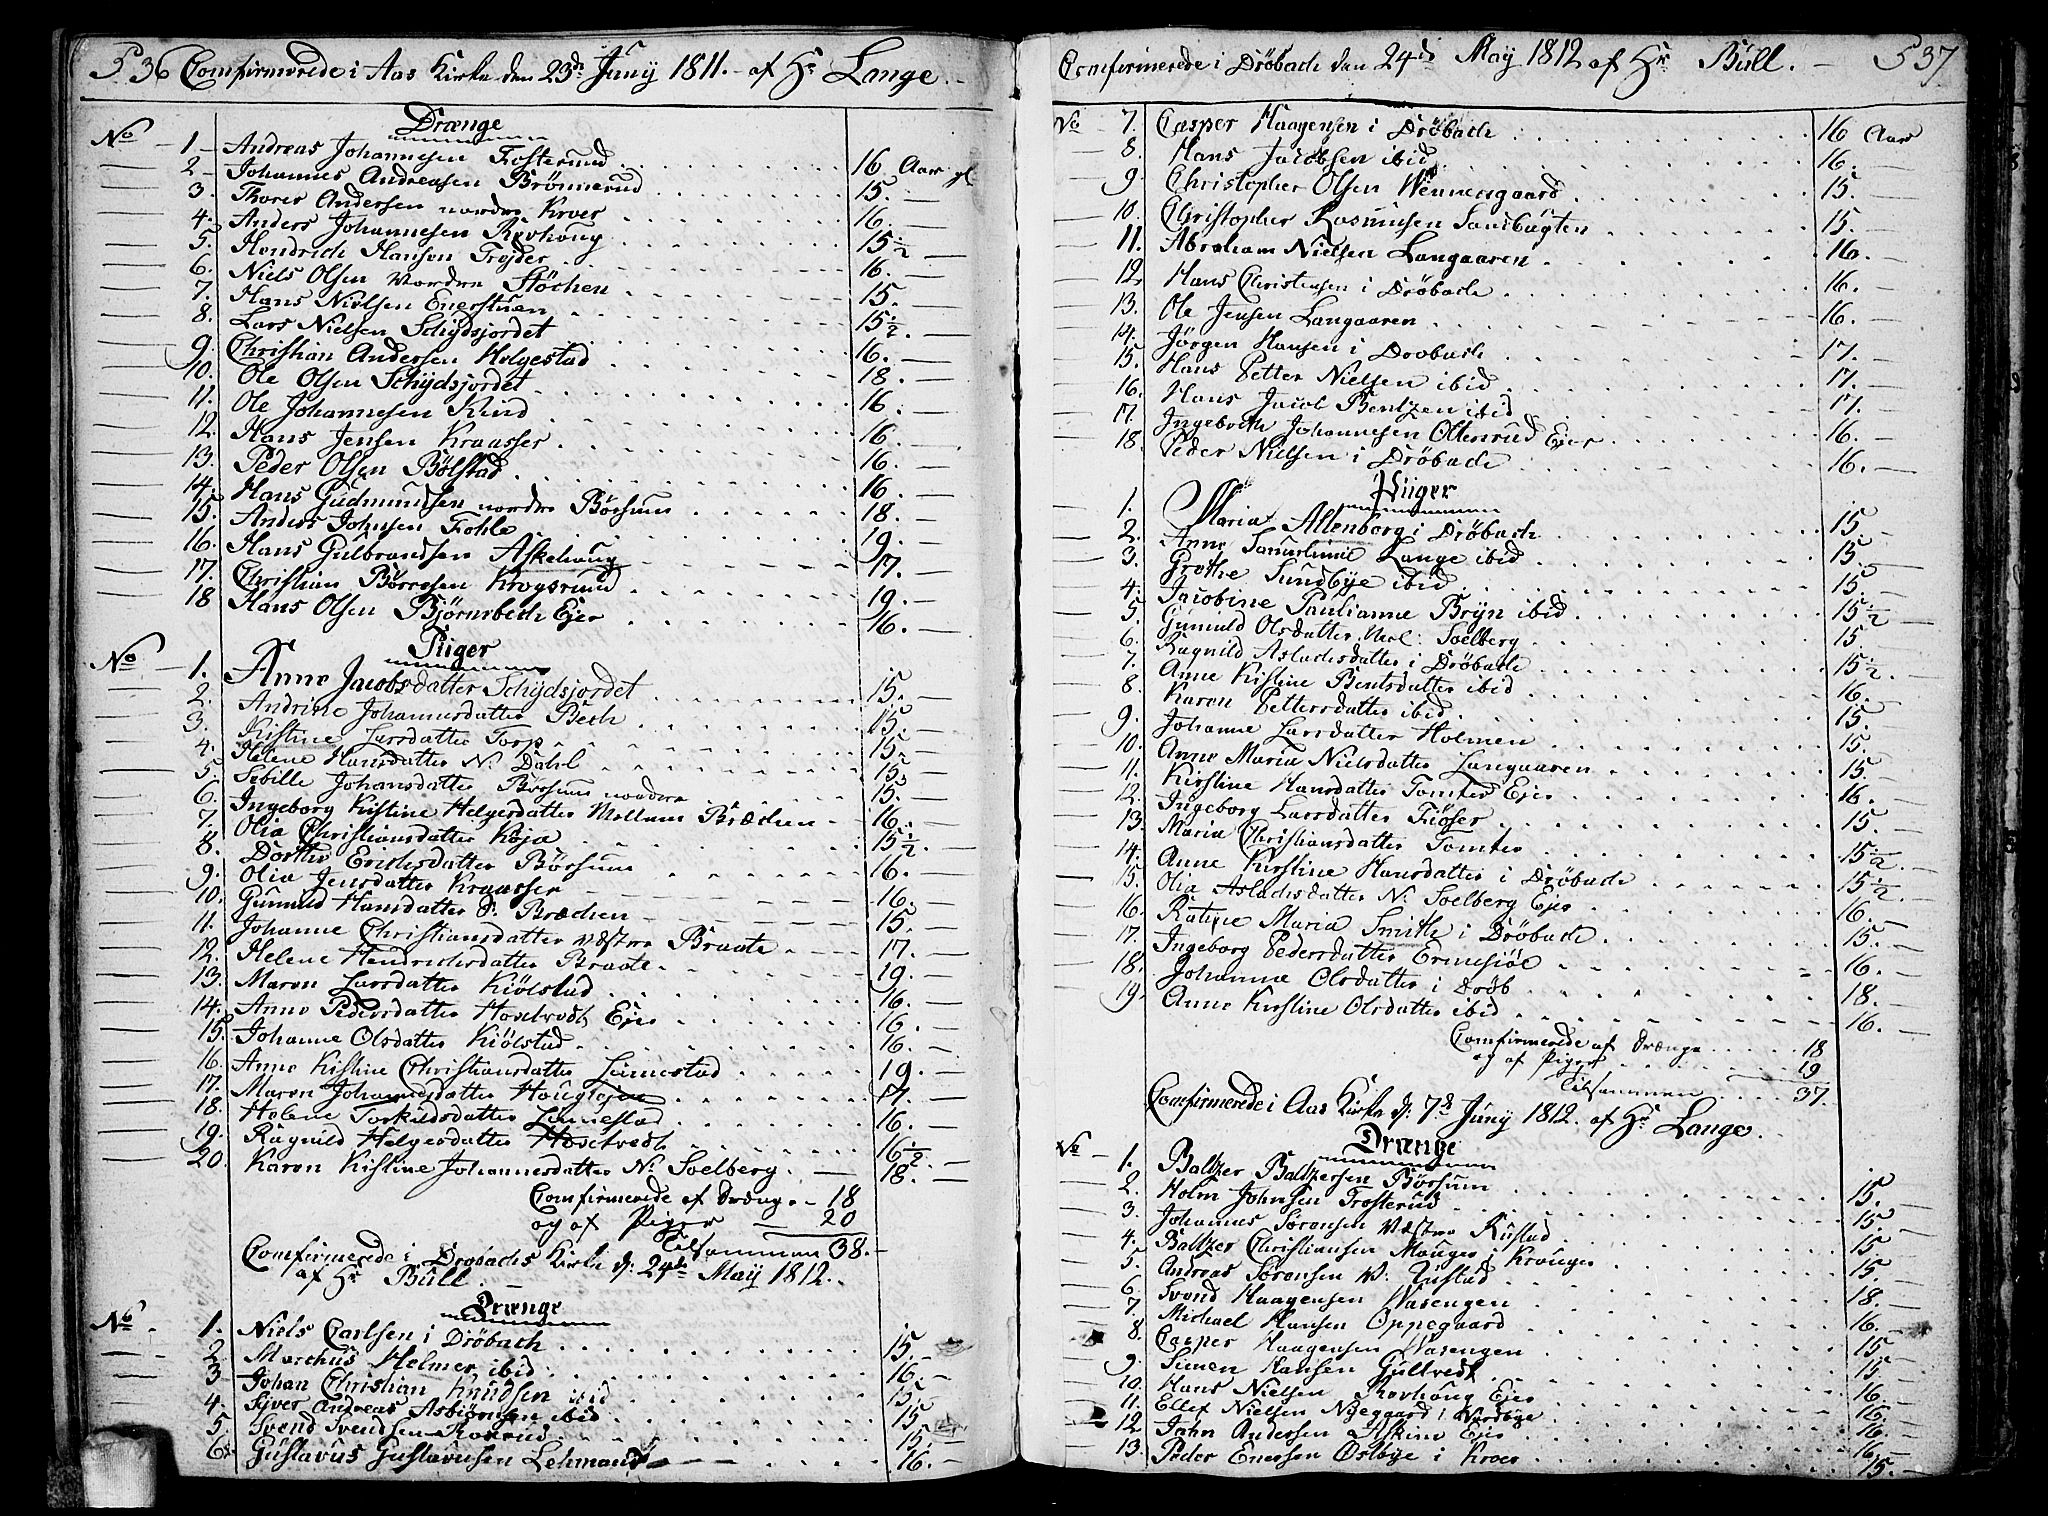 536 Comfirmerede i Aas Kirke den 23de Juny 1811. - af Hr Lange. -
Drænge
No 1 Andreas Johannesen Fosterud 16 Aar gl
2 Johannes Andreasen Brönnerud 15. -
3. Thorer Andersen nordre Kroer 16. -
4. Anders Johannesen Revhoug 15 1/2 -
5. Hendrich Hansen Frojder 16. -
6. Niels Olsen Nordre Stöchen 15. -
7. Hans Nielsen Enerstuen 15 1/2 -
8. Lars Nielsen Schydsjordet 16. -
9. Christian Andersen Holgestad 18. -
10. Ole Olsen Schydsjordet 16. -
11. Ole Johannesen Kind 16. -
12. Hans Jensen Kraasser 16. -
13. Peder Olsen Bölstad 16. -
14. Hans Gudmundsen nordre Börsum 18. -
15. Anders Johnsen Fohle 19. -
16. Hans Gulbrandsen Askehoug 17. -
17. Christian Börresen Krogsrund 19. -
18 Hans Olsen Björnebech Ejer 16. -
Piiger
No 1. Anne Jacobsdatter Schydsjordet 15. -
2. Andrine Johannesdatter Bech 15. -
3. Kistine Larsdatter Torp 15. -
4. Helene Hansdatter N. Dahl 15. -
5 Sebille Johansdatter Börsum nordre 15. -
6. Ingeborg Kistine Helgesdatter Mellum Bræchen - 16. -
7. Olia Christiansdatter Kaja 15 1/2 -
8. Dorthe Erichsdatter Börsum 16. -
9. Olia Jensdatter Kraasser 16. -
10. Gunnild Hansdatter S. Bræchen 15. -
11. Johanne Christiansdatter væstre Braate 17. -
12. Helene Hendrichsdatter Braate 19. -
13. Maren Larsdatter Kiölstad 16. -
14. Anne Pedersdatter Hoxtvedt Ejer 16. -
15. Johanne Olsdatter Kiölstad 16. -
16. Anne Kistine Christiansdatter Linnestad 19. -
17. Maren Johannesdatter Hougtejne 17. -
18. Helene Torkildsdatter Linnestad 16. -
19. Ragnild Helgesdatter Hoxtvedt 16 1/2 -
20. Karen Kistine Johannesdatter N. Soelberg 18. -
Comfirmerede af Drænge - 18
og af Piger - 20
Tilsammen 38. -
Comfirmerede i Dröbachs Kirke d: 24de May 1812.
af Hr Bull. -
Drænge
No 1. Niels Carlsen i Dröbach 15. -
2. Marchus Helmer ibid 16. -
3 Johan Christian Knudsen ibid 15. -
4. Syver Andreas Asbiörnsen ibid 15. -
5 Svend Svendsen 15. -
6. Gustavus Gustavusen Lehmand 16. -
Comfirmerede i Dröbach den 24de May 1812 af Hr Bull. - 537
No 7. Casper Haagensen i Dröbach 16 Aar
8. Hans Jacobsen ibid 16. -
9. Christopher Olsen Wennersgaard 15. -
10. Christopher Rasmusen Sandbugten 15. -
11. Abraham Nielsen Langaaren 16. -
12. Hans Christensen i Dröbach 16. -
13. Ole Jensen Langaaren 16. -
14. Jörgen Hansen i Dröbach 17. -
15. Hans Petter Nielsen ibid 17. -
16. Hans Jacob Bentzen ibid 17. -
17. Ingebreth Johannesen Ottersrud Ejer 16. -
18. Peder Nielsen i Dröbach 16. -
Piiger
1. Maria Altenborg i Dröbach 15 -
2. Anne Lange ibid 15. -
3. Grethe Sundbye ibid 15. -
4. Jacobine Paulianne Bryn ibid 15 1/2 -
5. Gunnild Olsdatter Soelberg 15. -
6. Ragnild Aslachsdatter i Dröbach 15 1/2 -
7. Anne Kistine Bentsdatter ibid 16. -
8. Karen Pettersdatter ibid 15. -
9. Johanne Larsdatter Holmen 15. -
10. Anne Maria Nielsdatter Langaaren 15. -
11. Kirstine Hansdatter Tomter Ejer 16. -
12. Ingeborg Larsdatter Fiöser 15. -
13. Maria Christiansdatter Tomter 15 1/2 -
14. Anne Kirstine Hansdatter i Dröbach 15 1/2 -
15. Olia Aslachsdatter N. Soelberg Ejer 16. -
16. Ratine Maria Smith i Dröbach 15. -
17. Ingeborg Pedersdatter Ermesiöe 16. -
18. Johanne Olsdatter i Dröb 18. -
19. Anne Kirstine Olsdatter ibid 16. -
Comfirmerede af Drænge 18
og af Piger 19
Tilsammen 37.
Comfirmerede i Aas Kirke d: 7de Juny 1812. af Hr Lange.
Drænge
No 1. Baltzer Baltzersen Börsum 15. -
2. Holm Johnsen Frosterud 15 -
3. Johannes Sörensen Væstre Rustad 15. -
4. Baltzer Christiansen Mauger i Krouger 15. -
5. Andreas Sörensen V. Rustad 18. -
6. Svend Haagensen Vasengen 16. -
7. Michael Hansen Oppegaard 15. -
8. Casper Haagensen Vasengen 15. -
9. Simen Hansen Gultvedt 16. -
10. Hans Nielsen Revhoug Ejer 16. -
11. Ellef Nielsen Nyegaard i Nordbye 16. -
12. John Andersen Askim Ejer 16. -
13. Peder Enersen Östbye i Kroer 15. -